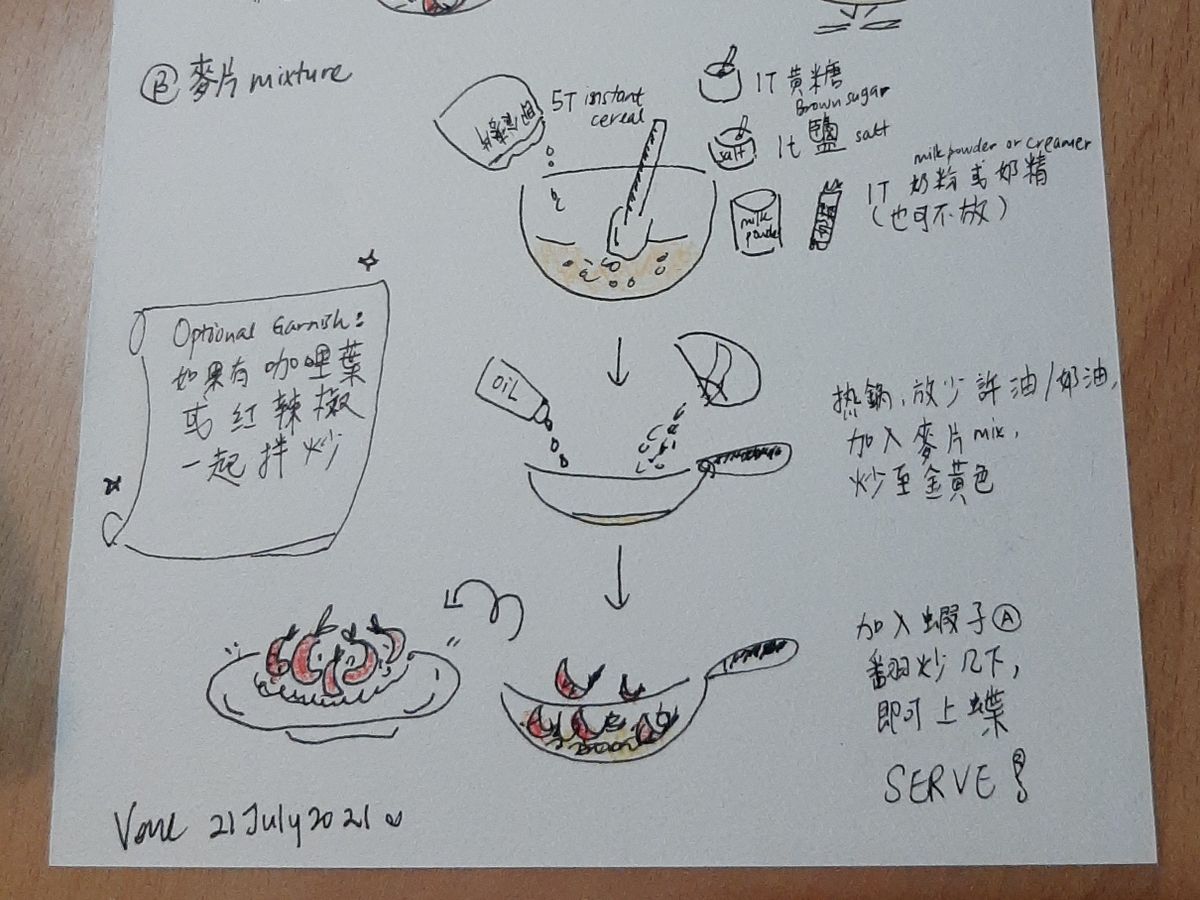 Ⓑ 麥片 mixture
即食麥片
5T instant
cereal
1T 黄糖
Brown sugar
salt
1t 鹽 salt
milk powder or creamer
1T 奶粉或奶精
(也可不放)
milk
powder
奶精
Optional Garnish:
如果有咖哩葉
或红辣椒
一起拌炒
OIL
热鍋、放少許油/奶油,
加入麥片mix,
炒至金黃色
加入蝦子Ⓐ
翻炒几下,
即可上碟
SERVE!
21 July 2021